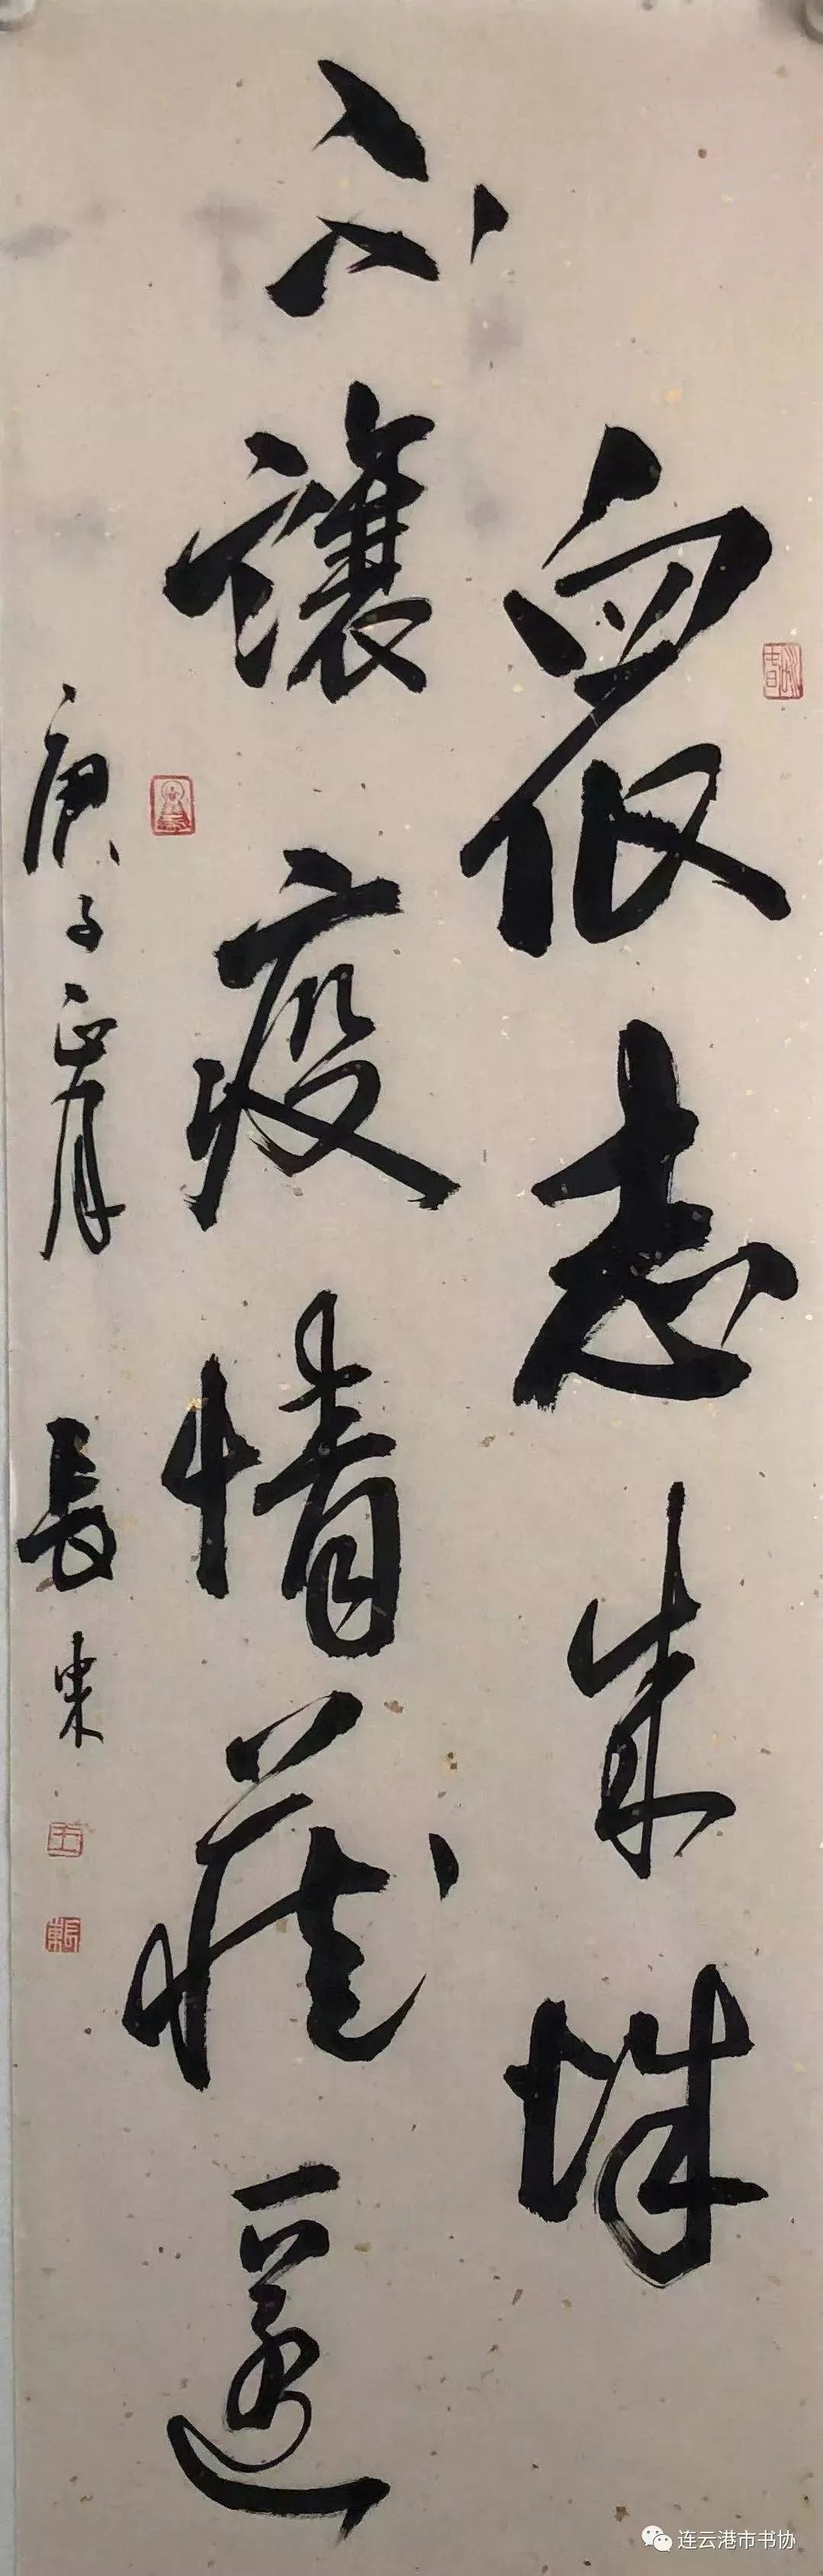 眾志成城
不讓疫情蔓延
庚子正月 長東
连云港市书协